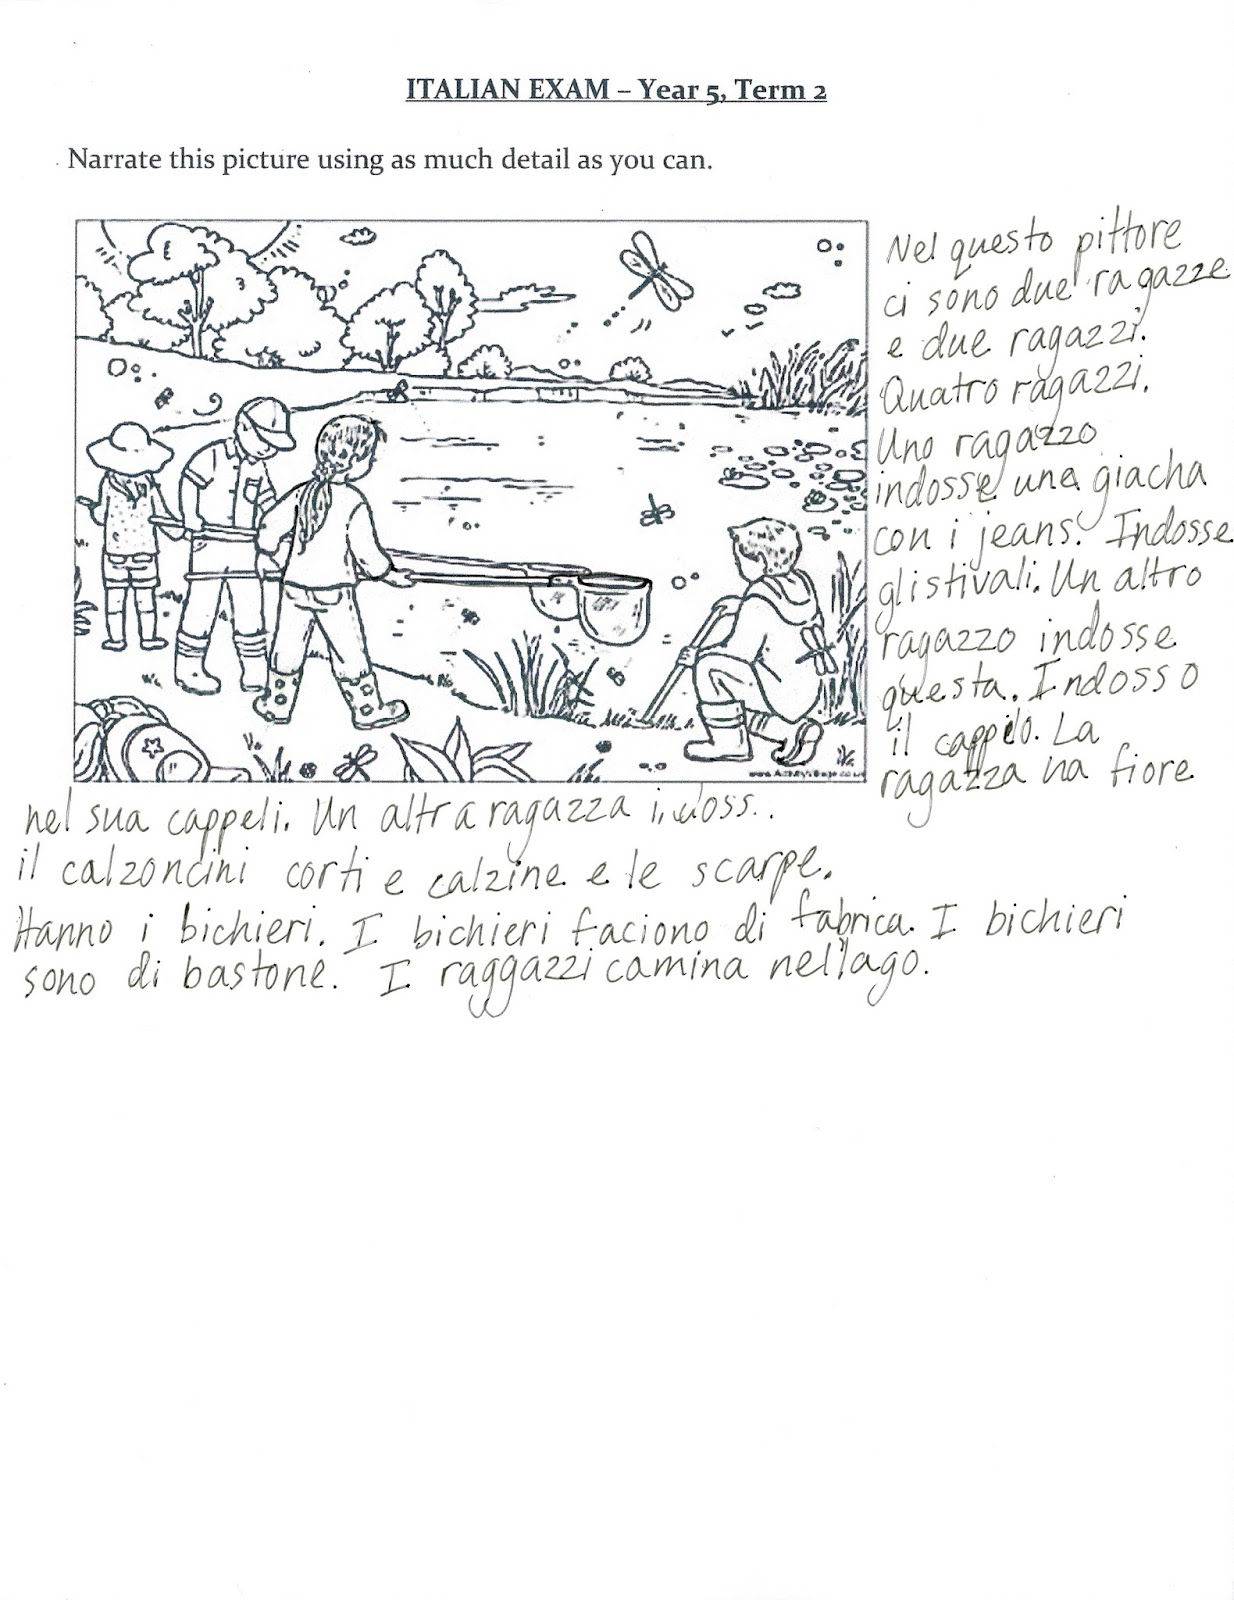 ITALIAN EXAM – Year 5, Term 2
Narrate this picture using as much detail as you can.
Nel questo pittore
ci sono due ragazze
e due ragazzi.
Quatro ragazzi.
Uno ragazzo
indosse una giacha
con i jeans. Indosse
gli stivali. Un altro
ragazzo indosse
questa. Indosso
il cappelo. La
ragazza ha fiore
nel sua cappeli. Un altra ragazza
il calzoncini corti e calzine e le scarpe.
Hanno i bichieri. I bichieri faciono di fabrica. I bichieri
sono di bastone. I raggazzi camina nel lago.